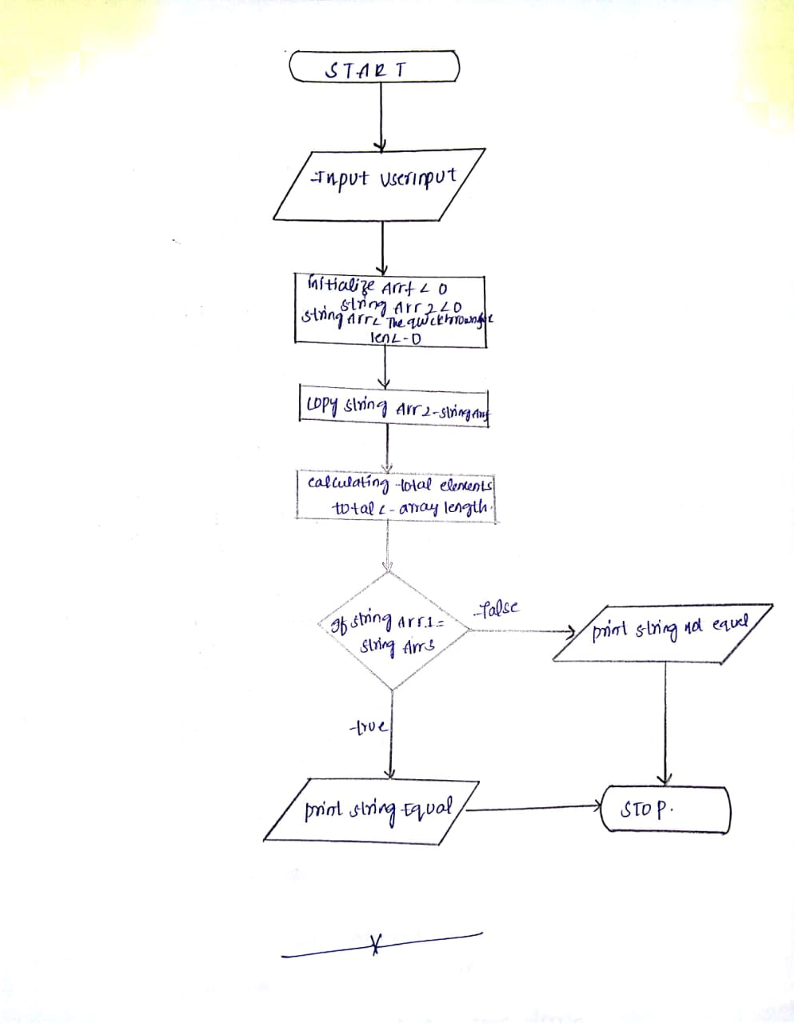 START
Input userinput
initialize Arr1 < 0
string Arr 2 < 0
string Arr < The quick brown
len < - 0
copy string Arr 2 - string
calculating total elements
total < - array length.
If string Arr 1 =
string Arr3
false
print string not equel
true
print string Equal
STOP.